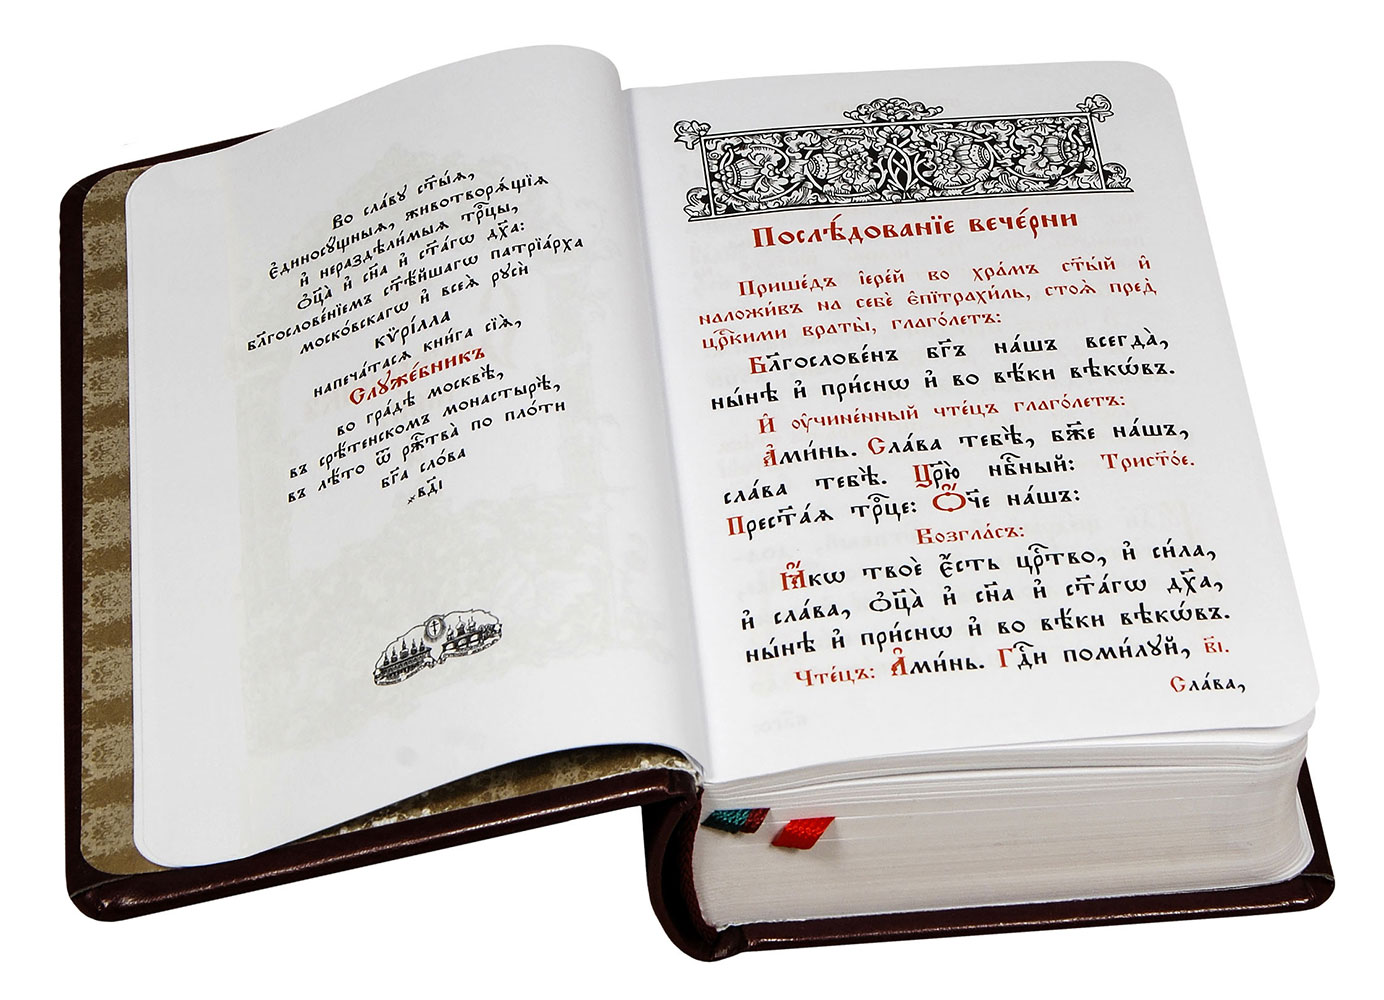 Во сла́вꙋ ст҃ы́ѧ,
є҆диносꙋ́щныѧ, животворѧ́щїѧ
и҆ нераздѣ́лимыѧ трⷪ҇цы,
ѻ҆ц҃а̀ и҆ сн҃а и҆ ст҃а́гѡ дх҃а:
бл҃гослове́нїемъ ст҃ѣ́йшагѡ патрїа́рха
моско́вскагѡ и҆ всеѧ̀ рꙋсѝ
кѷрі́лла
напеча́тасѧ кни́га сїѧ̀,
Слꙋже́бникъ
во гра́дѣ москвѣ̀,
въ срѣ́тенскомъ монастырѣ̀,
въ лѣ́то ѿ ржⷭ҇тва̀ по пло́ти
бг҃а сло́ва
҂вд҃і
Послѣ́дованїе вече́рни
Прише́дъ і҆ере́й во хра́мъ ст҃ы́й и҆
наложи́въ на себѐ є҆пїтрахи́ль, стоѧ̀ пред̾
црⷭ҇кими враты̀, глаго́летъ:
Бл҃гослове́нъ бг҃ъ на́шъ всегда̀,
ны́нѣ и҆ при́снѡ и҆ во вѣ́ки вѣкѡ́въ.
И҆ ᲂу҆чине́нный чте́цъ глаго́летъ:
А҆ми́нь. Сла́ва тебѣ̀, бж҃е на́шъ,
сла́ва тебѣ̀. Црⷭ҇ю̀ нбⷭ҇ный: Трист҃о́е.
Прест҃а́ѧ трⷪ҇це: Ѻ҆́ч҃е на́шъ:
Возгла́съ:
Ꙗ҆́кѡ твоѐ є҆́сть црⷭ҇тво, и҆ си́ла,
и҆ сла́ва, ѻ҆ц҃а̀ и҆ сн҃а и҆ ст҃а́гѡ дх҃а,
ны́нѣ и҆ при́снѡ и҆ во вѣ́ки вѣкѡ́въ.
Чте́цъ: А҆ми́нь. Гдⷭ҇и поми́лꙋй, в҃і.
Сла́ва,